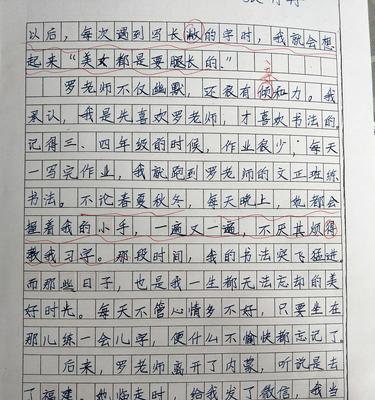 以后，每次遇到写长撇的字时，我就会想
起来“美女都是要腿长的.”
罗老师不仅幽默，还很有倾和力。我
承认，我是先喜欢罗老师，才喜欢书法的。
记得三、四年级的时候，作业很少；每天
一写完作业，我就跑到罗老师的文正班练
书法。不论春夏秋冬，每天晚上，她都会
握着我的小手，一遍又一遍，不厌其烦得
教我习字。那段时间，我的书法突飞猛进。
而那些日子，也是我一生都无法忘却的美
好时光。每天不管心情多不好，只要坐在
那儿练一会儿字，便什么不愉快都忘记了。
后来，罗老师离开了内蒙，听说是去
了福建。她临走时，给我发了微信，我当